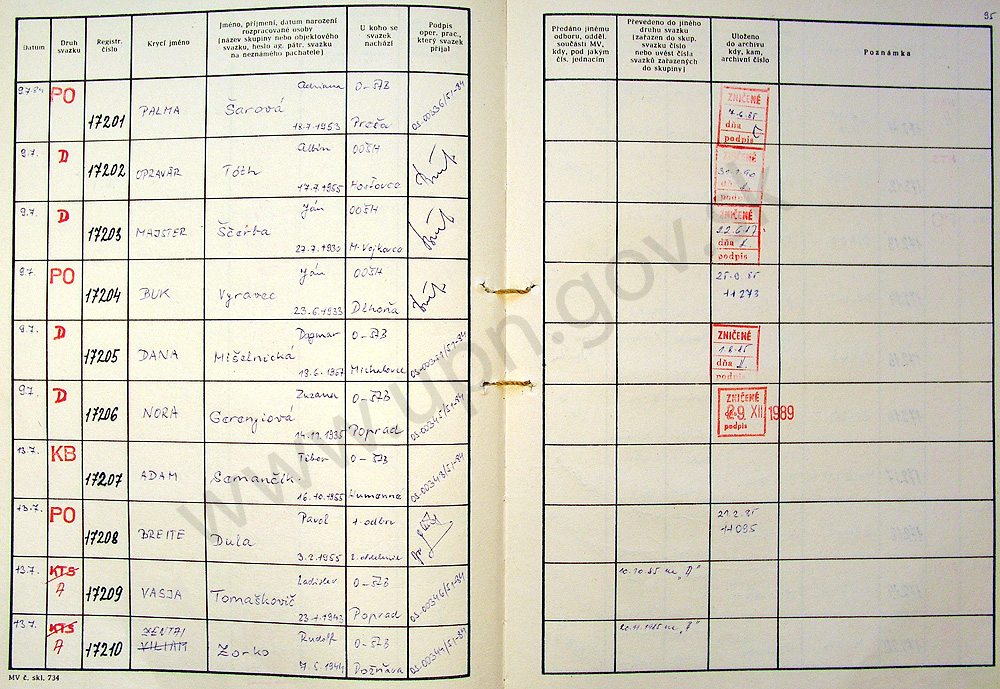 Datum
Druh
svazku
Registr.
číslo
Krycí jméno
Jméno, příjmení, datum narození
rozpracované osoby
(název skupiny nebo objektového
svazku, heslo ag. pátr. svazku
na neznámého pachatele)
U koho se
svazek
nachází
Podpis
oper. prac.,
který svazek
přijal
Předáno jinému
odboru, odděl.
součásti MV,
kdy, pod jakým
čís. jednacím
Převedeno do jiného
druhu svazku
(zařazen do skup.
svazku číslo
nebo uvést čísla
svazků zařazených
do skupiny)
Uloženo
do archivu
kdy, kam,
archivní číslo
Poznámka
95
9.7.84 PO 17201 PALMA Adriana Šarová 18.7.1953 0-ŠTB Preša OS-00336/51-84
ZNIČENÉ
dňa
podpis
9.7. D 17202 OPRAVÁR Albín Tóth 17.7.1955 OOŠH
ZNIČENÉ
dňa
podpis
9.7. D 17203 MAJSTER Ján Ščerba 27.7.1930 OOŠH M. Vojkovce
ZNIČENÉ
22.6.87
dňa
podpis
9.7. PO 17204 BUK Ján Vyravec 23.6.1933 OOŠH Dlhoňa
25.9.85
11273
9.7. D 17205 DANA Dagmar Mišelnická 0-ŠTB Michalovce
ZNIČENÉ
1.8.85
dňa
podpis
9.7. D 17206 NORA Zuzana Gerenyiová 14.12.1935 0-ŠTB Poprad OS-00345/51-84
ZNIČENÉ
29. XII. 1989
podpis
13.7. KB 17207 ADAM Tibor Semančík 16.10.1955 0-ŠTB Humenné OS-00348/51-84
13.7. PO 17208 BREITE Pavol Dula 3.2.1955 1. odbor 2. oddelenie
21.2.85
11095
13.7. KTS A 17209 VASJA Ladislav Tomaškovič 23.1.1943 0-ŠTB Poprad OS-00346/51-84
10.10.85 na "A"
13.7. KTS A 17210 ZENTAI VILIAM Rudolf Zorko 7.5.1944 0-ŠTB Rožňava OS-00344/51-84
MV č. skl. 734
www.upn.gov.sk